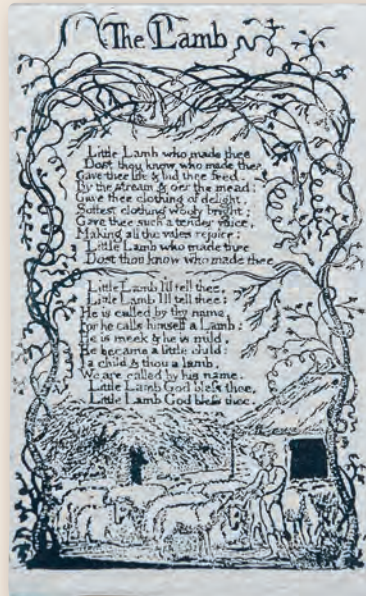 The Lamb
Little Lamb who made thee
Dost thou know who made thee
Gave thee life & bid thee feed.
By the stream & oer the mead;
Gave thee clothing of delight,
Softest clothing wooly bright;
Gave thee such a tender voice,
Making all the vales rejoice:
Little Lamb who made thee
Dost thou know who made thee
Little Lamb I'll tell thee,
Little Lamb I'll tell thee:
He is called by thy name,
For he calls himself a Lamb:
He is meek & he is mild,
He became a little child:
I a child & thou a lamb,
We are called by his name.
Little Lamb God bless thee,
Little Lamb God bless thee.